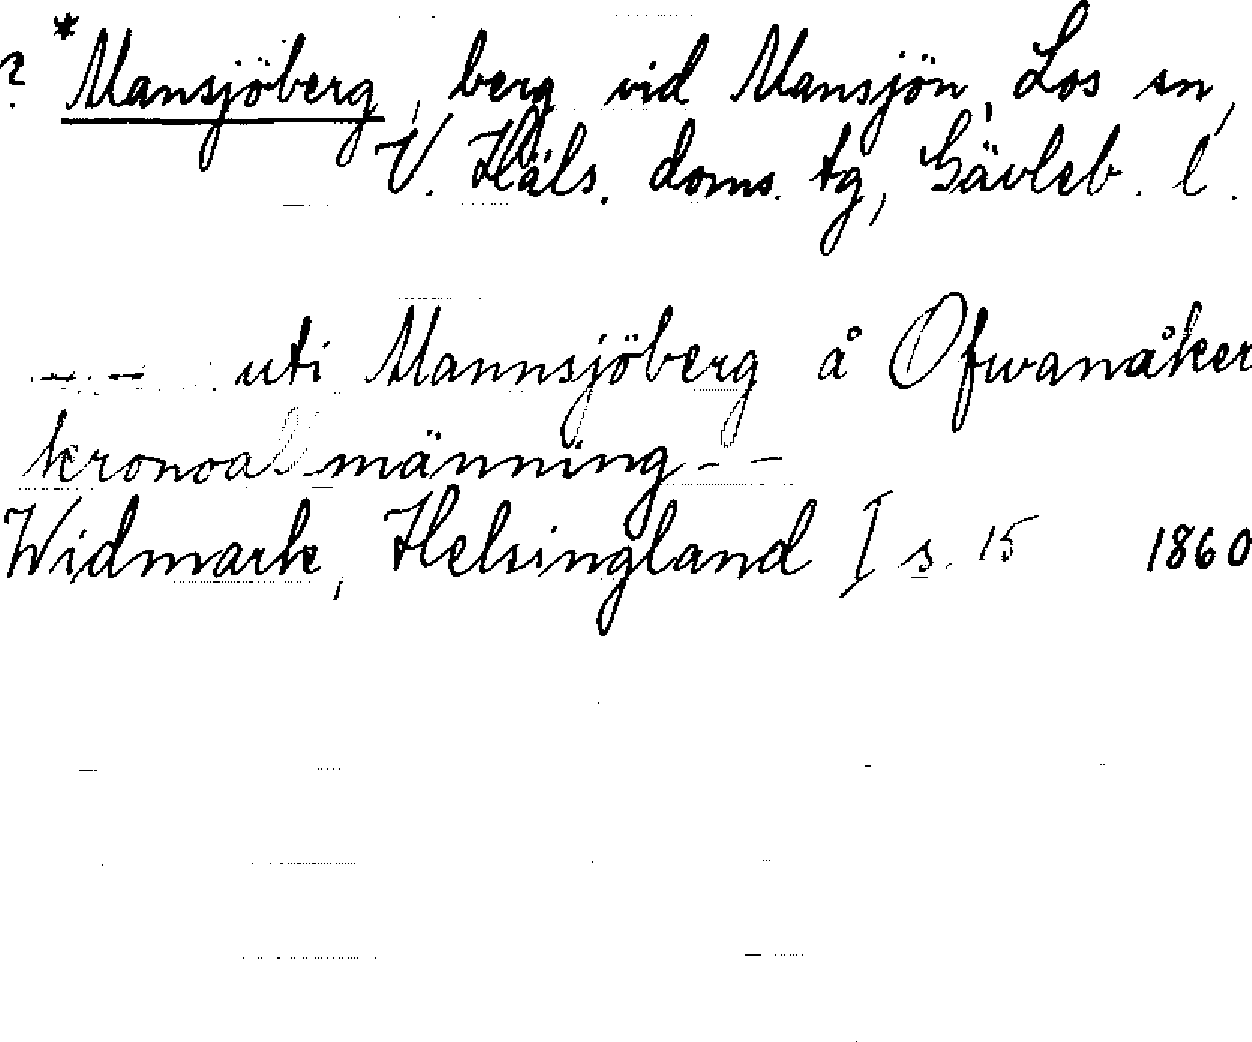 ? *Mansjöberg, berg vid Mansjön, Los sn,
V. Häls. doms. tg, Gävleb. l.
— — uti Mannsjöberg å Ofwanåker
kronoallmänning — —
Widmark, Helsingland I s. 15 1860